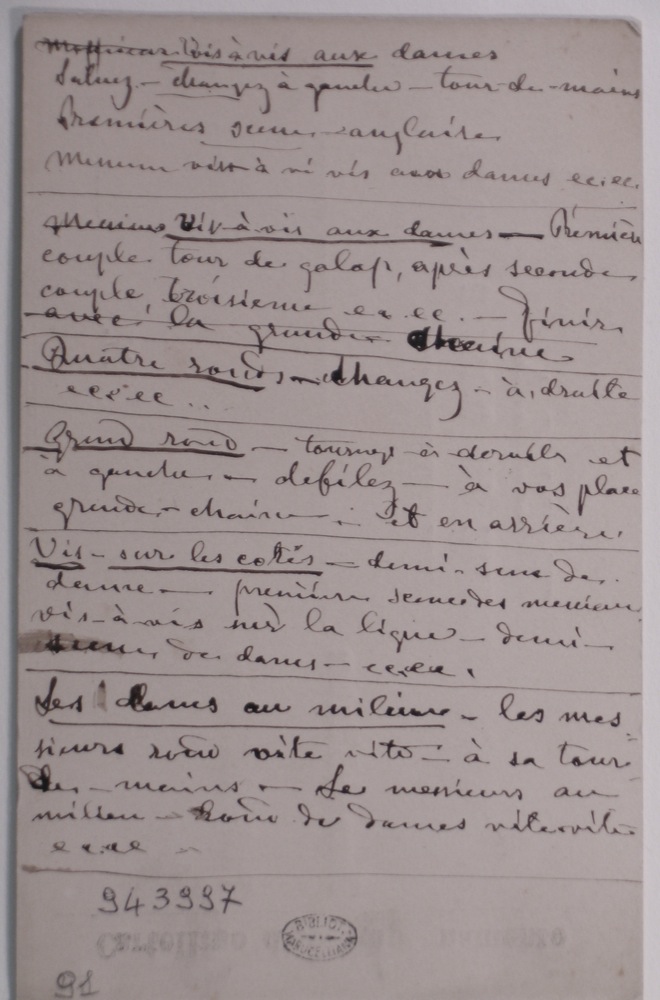 Vis à vis aux dames
Saluez - changez à gauche - tour-de-mains
Premières scene - anglaise
vis à vis aux dames ec.ec.
Vis-à-vis aux dames - Premier
couple tour de galop, après seconde
couple, troisieme ec. ec. - Finir
avec la grande chaine
Quatre ronds - changez - à droite
ec ec ec ..
Grand rond - tournez à droite et
à gauche - defilez - à vos place
grande - chaine - . Et en arrière.
Vis - sur les cotés - demi - scene de
dame - première scene des messieurs
vis-à-vis sur la ligne - demi -
scene de dames - ec.ec.
Les dames au milieu - les mes-
sieurs rond vite vite - à sa tour
de - mains - Le messieurs au
milieu - Rond de dames vite vite
ec. ec -
943997
BIBLIOT.
91